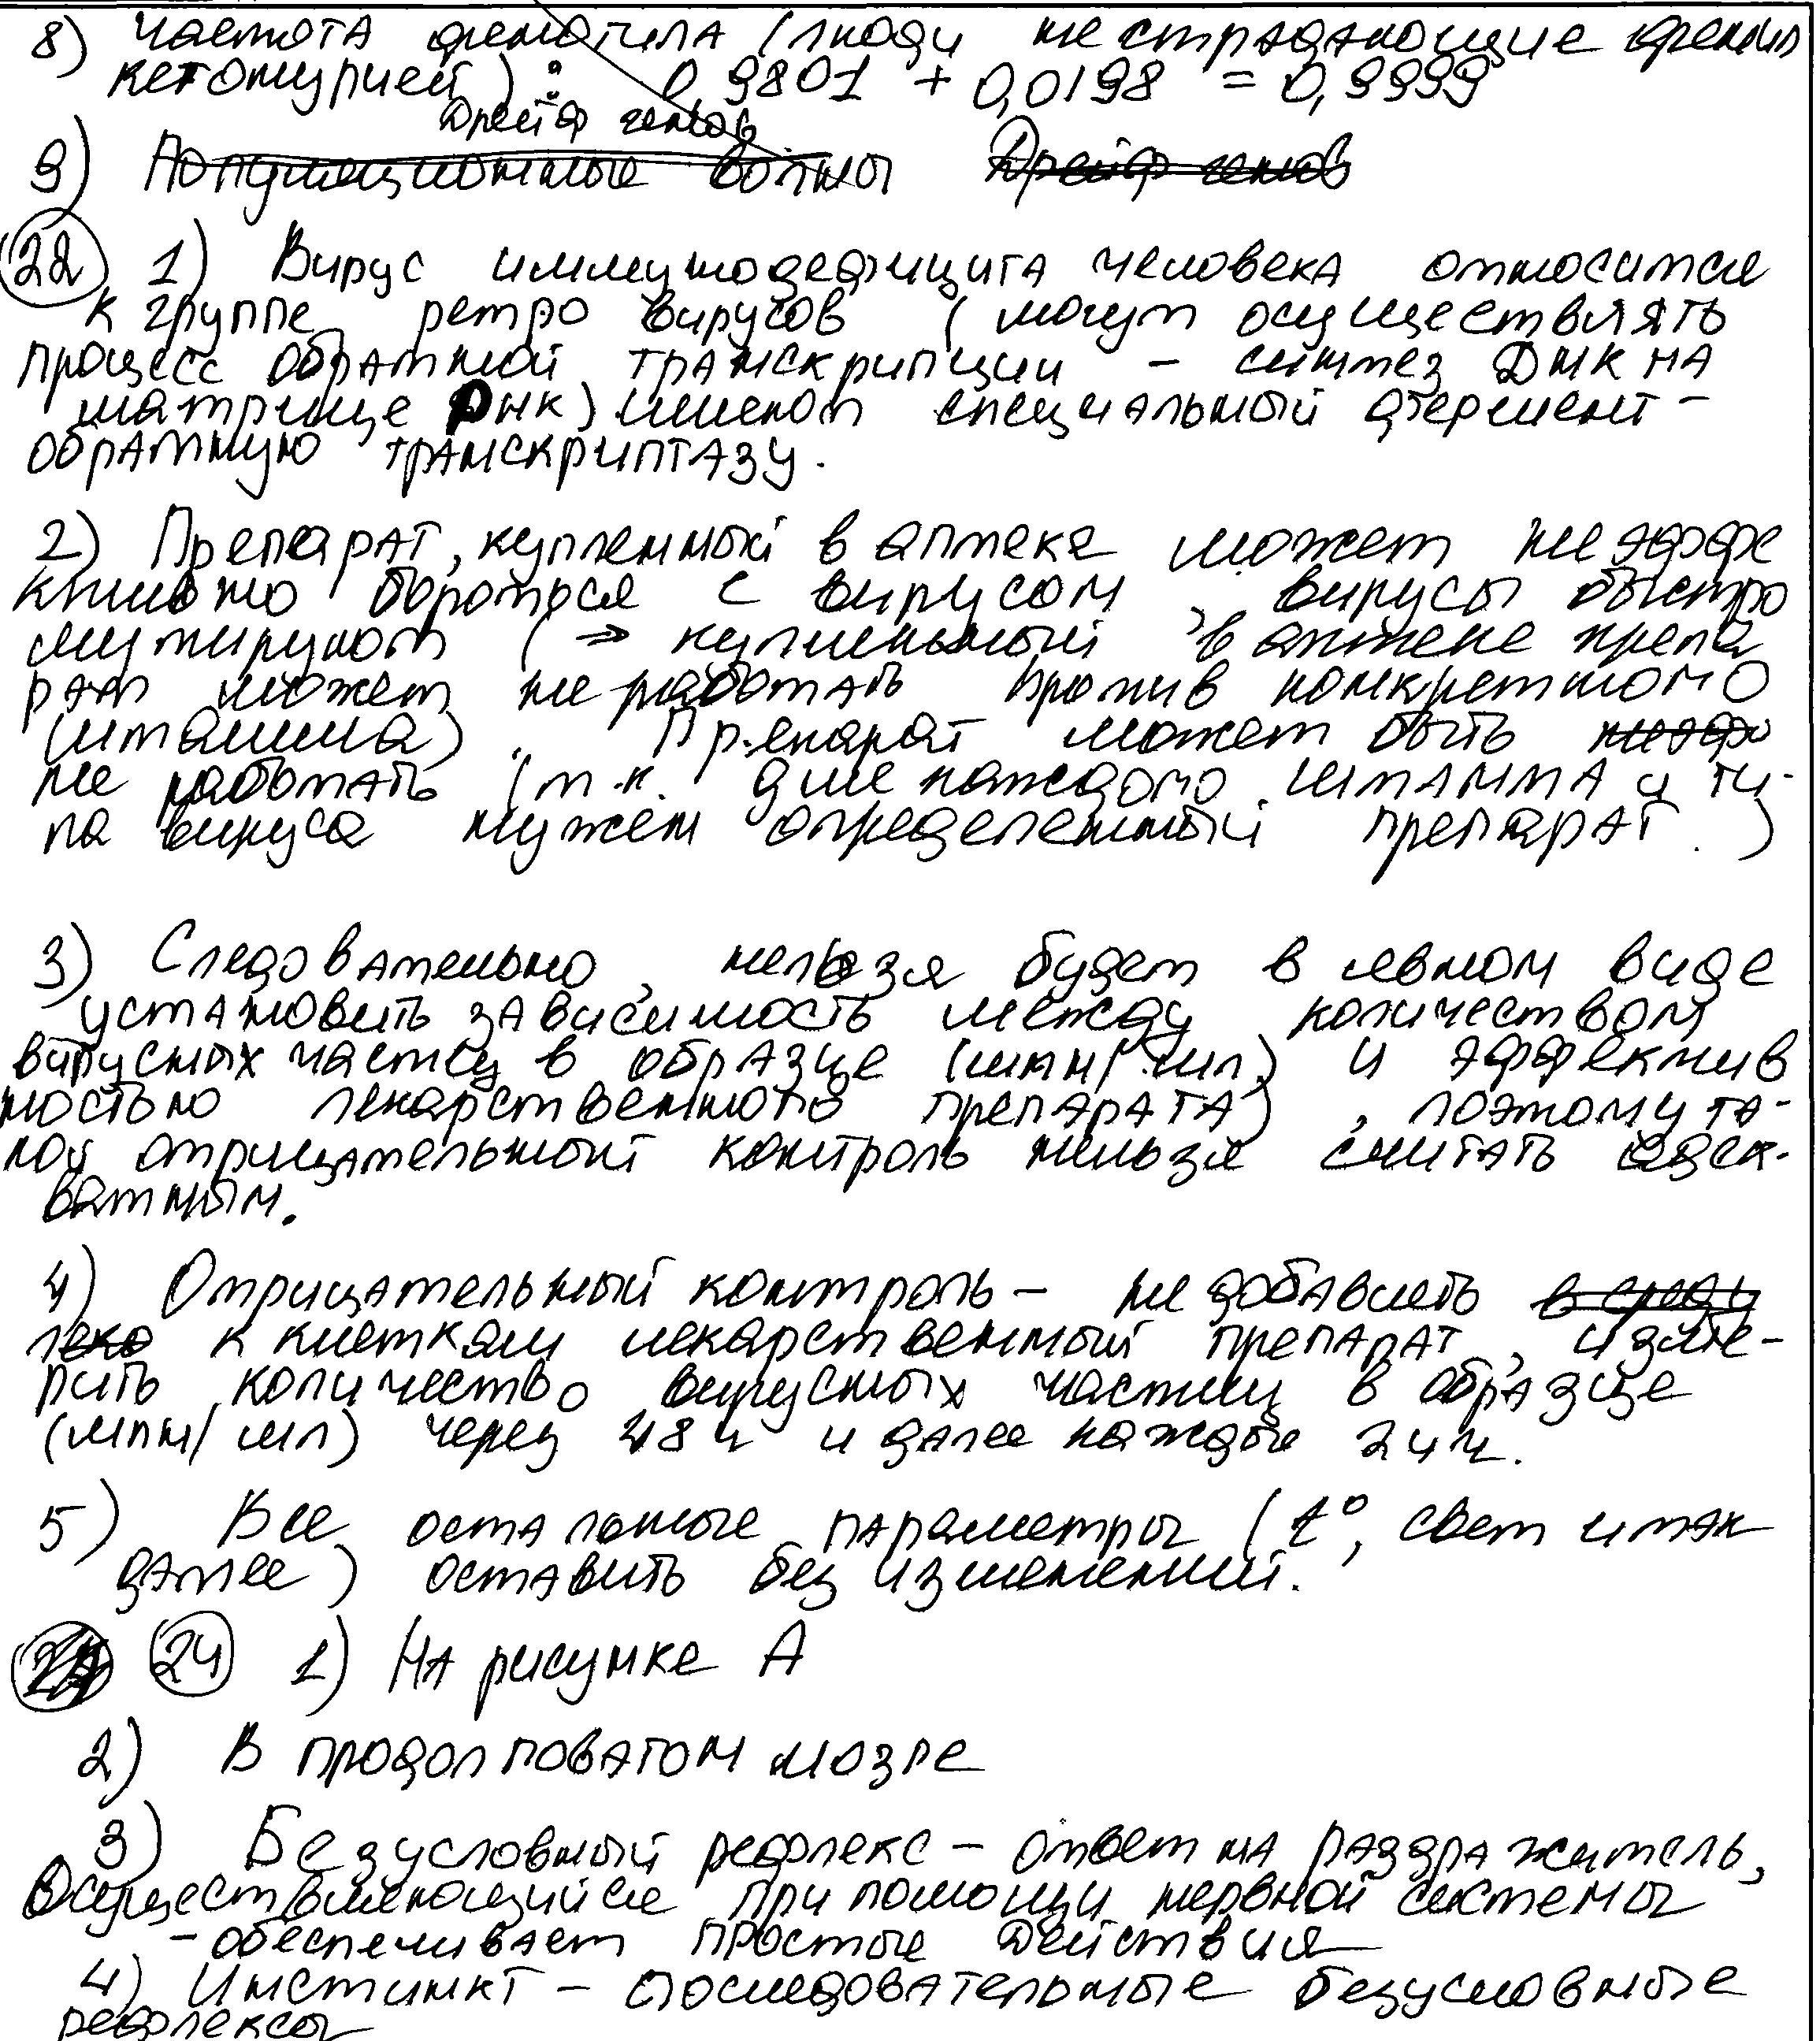 8) частота фенотипа (люди не страдающие фенил
кетонурией): 0,9801 + 0,0198 = 0,9999
Дрейф генов
9) Популяционные волны Дрейф генов
22 1) Вирус иммунодефицита человека относится
к группе ретро вирусов (могут осуществлять
процесс обратной транскрипции – синтез ДНК на
матрице РНК) имеют специальный фермент –
обратную транскриптазу.
2) Препарат, купленный в аптеке может не эффе
ктивно бороться с вирусом, вирусы быстро
мутируют (⇒ купленный в аптеке препа
рат может не работать против конкретного
штамма). Препарат может быть
не работать (т.к. для каждого штамма и ти-
па вируса нужен определенный препарат.)
3) Следовательно, нельзя будет в явном виде
установить зависимость между количеством
вирусных частиц в образце (млн/мл) и эффектив
ностью лекарственного препарата), поэтому та-
кой отрицательный контроль нельзя считать адек-
ватным.
4) Отрицательный контроль – не добавлять в среду
леко к клеткам лекарственный препарат, изме-
рить количество вирусных частиц в образце
(млн/мл) через 48 ч и далее каждые 24ч.
5) Все остальные параметры (t°, свет и так
далее) оставить без изменений.
24 1) На рисунке А
2) В продолговатом мозге
3) Безусловный рефлекс – ответ на раздражитель,
осуществляющийся при помощи нервной системы
– обеспечивает простые действия
4) Инстинкт – последовательные безусловные
рефлексы